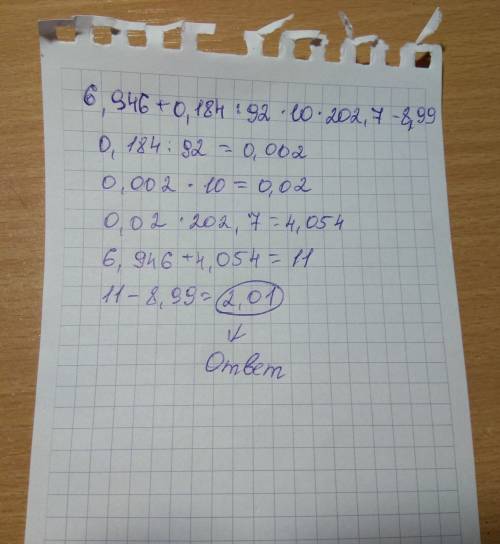 6,946+0,184:92·10·202,7-8,99
0,184:92=0,002
0,002·10=0,02
0,02·202,7=4,054
6,946+4,054=11
11-8,99=2,01
Ответ